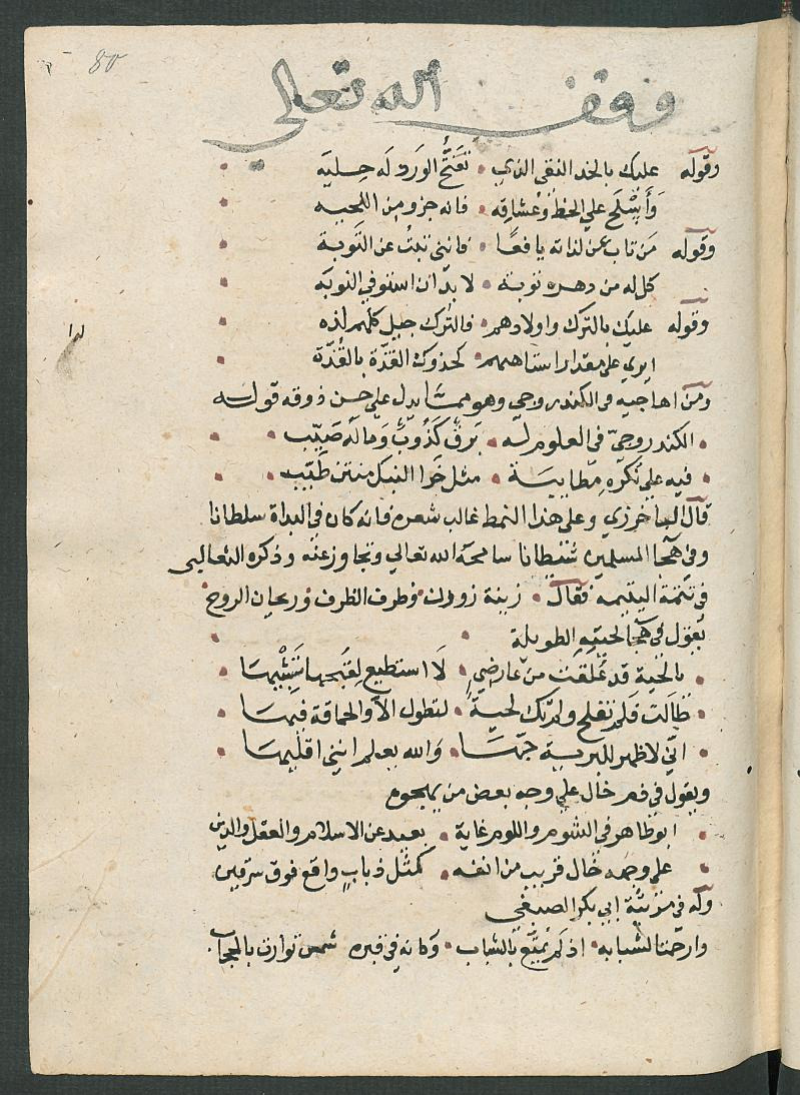 80
وقف الله تعالى
وقوله عليك بالخد النقي الذي • تفتح الورد له حليه
وابسلح علي الخط وعشاقه • فانه جزو من اللحيه
وقوله من تاب عن لذاته يافعا • فانني تبت عن التوبة
كل له من دهره نوبة • لا بد ان استوفي النوبه
وقوله عليك بالترك واولادهم • فالترك جيل كلهم لذه
ايري على مقدار استاههم • كحذوك القذة بالقذة
ومن اهاجيه في الكندروجي وهو مما يدل على حسن ذوقه قوله
• الكندروجي في العلوم له • برق كذوب وماله صيب •
• فيه علي نكره مطايبة • مثل خرا النيك منتن طيب •
قال الباخرزي وعلى هذا النمط غالب شعره فانه كان في البداة سلطانا
وفي هجا المسلمين شيطانا سامحه الله تعالي وتجاوز عنه وذكره الثعالبي
في تتمة اليتيمه فقال • زينة زوزن وطرف الظرف وريحان الروح
يقول في هجا لحيته الطويلة
• يا لحية قد علقت من عارضي • لا استطيع لقبحها تشبيها •
• طالت فلم تفلح ولم تك لحية • لتطول الا والحماقة فيها •
• اني لاظهر للبرية حبها • والله يعلم انني اقليها •
ويقول في ذم خال علي وجه بعض من يهجوه
• ابو طاهر في الشوم واللوم غاية • بعيد عن الاسلام والعقل والدين
• على وجهه خال قريب من انفه • كمثل ذباب واقع فوق سرقين
وله في مرثية ابي بكر الصبغي
وارحمتا لشبابه • اذ لم يمتع بالشباب • وكانه في قبره شمس توارت بالحجاب